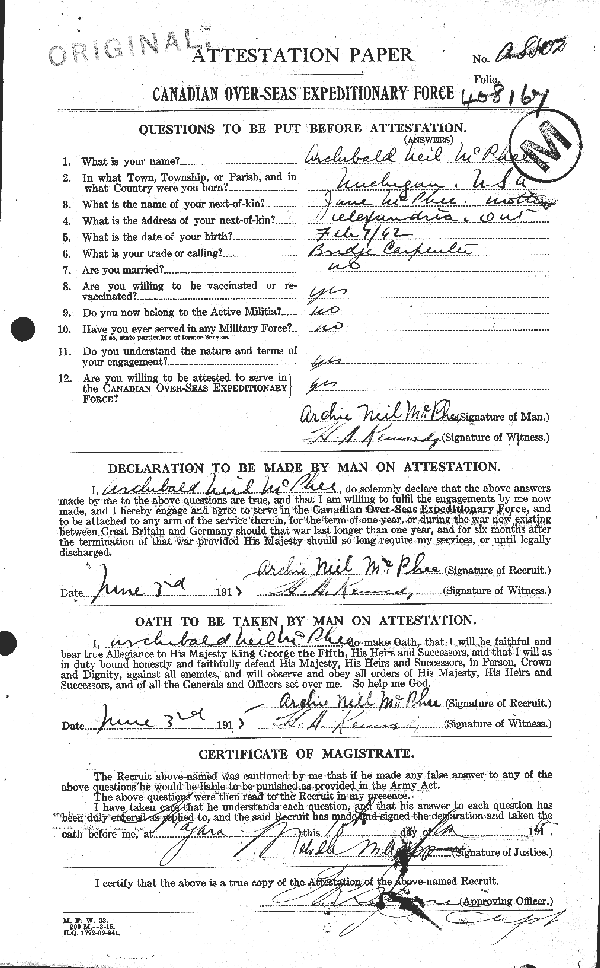 ORIGINAL
ATTESTATION PAPER
No.
Folio.
CANADIAN OVER-SEAS EXPEDITIONARY FORCE 408167
QUESTIONS TO BE PUT BEFORE ATTESTATION.
(ANSWERS)
M
1. What is your name? Archibald Neil McPhee
2. In what Town, Township, or Parish, and in
what Country were you born? Michigan, USA
3. What is the name of your next-of-kin? Jane McPhee mother
4. What is the address of your next-of-kin? Alexandria, Ont
5. What is the date of your birth?
6. What is your trade or calling? Bridge Carpenter
7. Are you married? no
8. Are you willing to be vaccinated or re-
vaccinated? yes
9. Do you now belong to the Active Militia? no
10. Have you ever served in any Military Force? no
If so, state particulars of former Service.
11. Do you understand the nature and terms of
your engagement? yes
12. Are you willing to be attested to serve in
the CANADIAN OVER-SEAS EXPEDITIONARY yes
FORCE?
Archie Neil McPhee (Signature of Man.)
H A Kennedy (Signature of Witness.)
DECLARATION TO BE MADE BY MAN ON ATTESTATION.
I, Archibald Neil McPhee, do solemnly declare that the above answers
made by me to the above questions are true, and that I am willing to fulfil the engagements by me now
made, and I hereby engage and agree to serve in the Canadian Over-Seas Expeditionary Force, and
to be attached to any arm of the service therein, for the term of one year, or during the war now existing
between Great Britain and Germany should that war last longer than one year, and for six months after
the termination of that war provided His Majesty should so long require my services, or until legally
discharged.
Archie Neil McPhee (Signature of Recruit.)
Date June 3rd 1915 H A Kennedy (Signature of Witness.)
OATH TO BE TAKEN BY MAN ON ATTESTATION.
I, Archibald Neil McPhee do make Oath, that I will be faithful and
bear true Allegiance to His Majesty King George the Fifth, His Heirs and Successors, and that I will as
in duty bound honestly and faithfully defend His Majesty, His Heirs and Successors, in Person, Crown
and Dignity, against all enemies, and will observe and obey all orders of His Majesty, His Heirs and
Successors, and of all the Generals and Officers set over me. So help me God.
Archie Neil McPhee (Signature of Recruit.)
Date June 3rd 1915 H A Kennedy (Signature of Witness.)
CERTIFICATE OF MAGISTRATE.
The Recruit above-named was cautioned by me that if he made any false answer to any of the
above questions he would be liable to be punished as provided in the Army Act.
The above questions were then read to the Recruit in my presence.
I have taken care that he understands each question, and that his answer to each question has
been duly entered as replied to, and the said Recruit has made and signed the declaration and taken the
oath before me, at this day of 191
(Signature of Justice.)
I certify that the above is a true copy of the Attestation of the above-named Recruit.
(Approving Officer.)
Capt
M. F. W. 23.
200 M.—3-15.
H.Q. 1772-39-841.